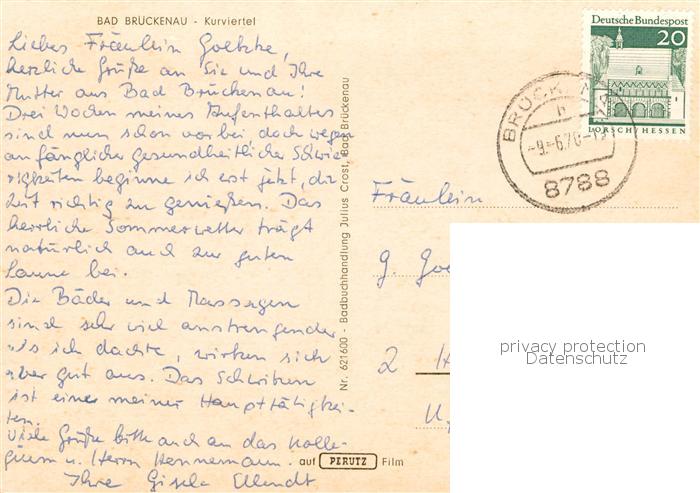 BAD BRÜCKENAU - Kurviertel
Liebes Fräulein Goetzke,
herzliche Grüße an Sie und Ihre
Mutter aus Bad Brückenau!
Drei Wochen meines Aufenthaltes
sind nun schon vorbei doch wegen
anfänglicher gesundheitlicher Schwie-
rigkeiten beginne ich erst jetzt, die
Zeit richtig zu genießen. Das
herrliche Sommerwetter trägt
natürlich auch zur guten
Laune bei.
Die Bäder und Massagen
sind sehr viel anstrengender
als ich dachte, wirken sich
aber gut aus. Das Schreiben
ist einer meiner Haupttätigkei-
ten.
Viele Grüße bitte auch an das Kolle-
gium u. Herrn Hennemann.
Ihre Gisela Ellendt
Nr. 621600 - Badbuchhandlung Julius Crost, Bad Brückenau
auf PERUTZ Film
Deutsche Bundespost
20
LORSCH/HESSEN
BRÜCKENAU
-9.-6.70-
8788
Fräulein
G. Goe
2 H
privacy protection
Datenschutz